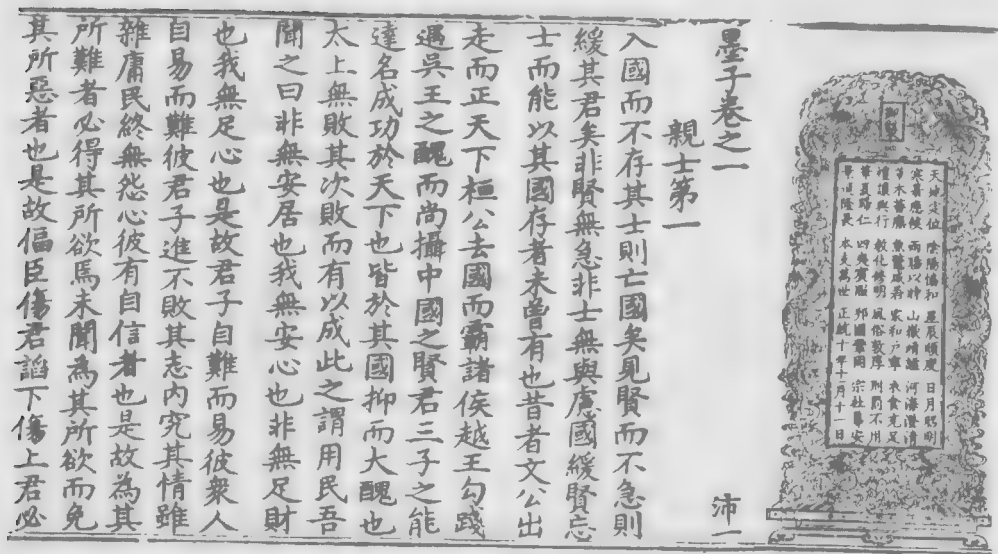 御製
天地定位 陰陽協和 星辰順度 日月昭明
寒暑應候 雨暘以時 山嶽靖謐 河海澄清
草木蕃廡 魚鱉咸若 家和戶寧 衣食充足
禮讓興行 教化修明 風俗敦厚 刑罰不用
華夏歸仁 四夷賓服 邦國鞏固 宗社尊安
景運隆長 本支萬世 正統十年十一月十一日
墨子卷之一 沛一
親士第一
入國而不存其士則亡國矣見賢而不急則
緩其君矣非賢無急非士無與慮國緩賢忘
士而能以其國存者未曾有也昔者文公出
走而正天下桓公去國而霸諸侯越王勾踐
遇吳王之醜而尚攝中國之賢君三子之能
達名成功於天下也皆於其國抑而大醜也
太上無敗其次敗而有以成此之謂用民吾
聞之曰非無安居也我無安心也非無足財
也我無足心也是故君子自難而易彼衆人
自易而難彼君子進不敗其志內究其情雖
雜庸民終無怨心彼有自信者也是故為其
所難者必得其所欲焉未聞為其所欲而免
其所惡者也是故偪臣傷君諂下傷上君必